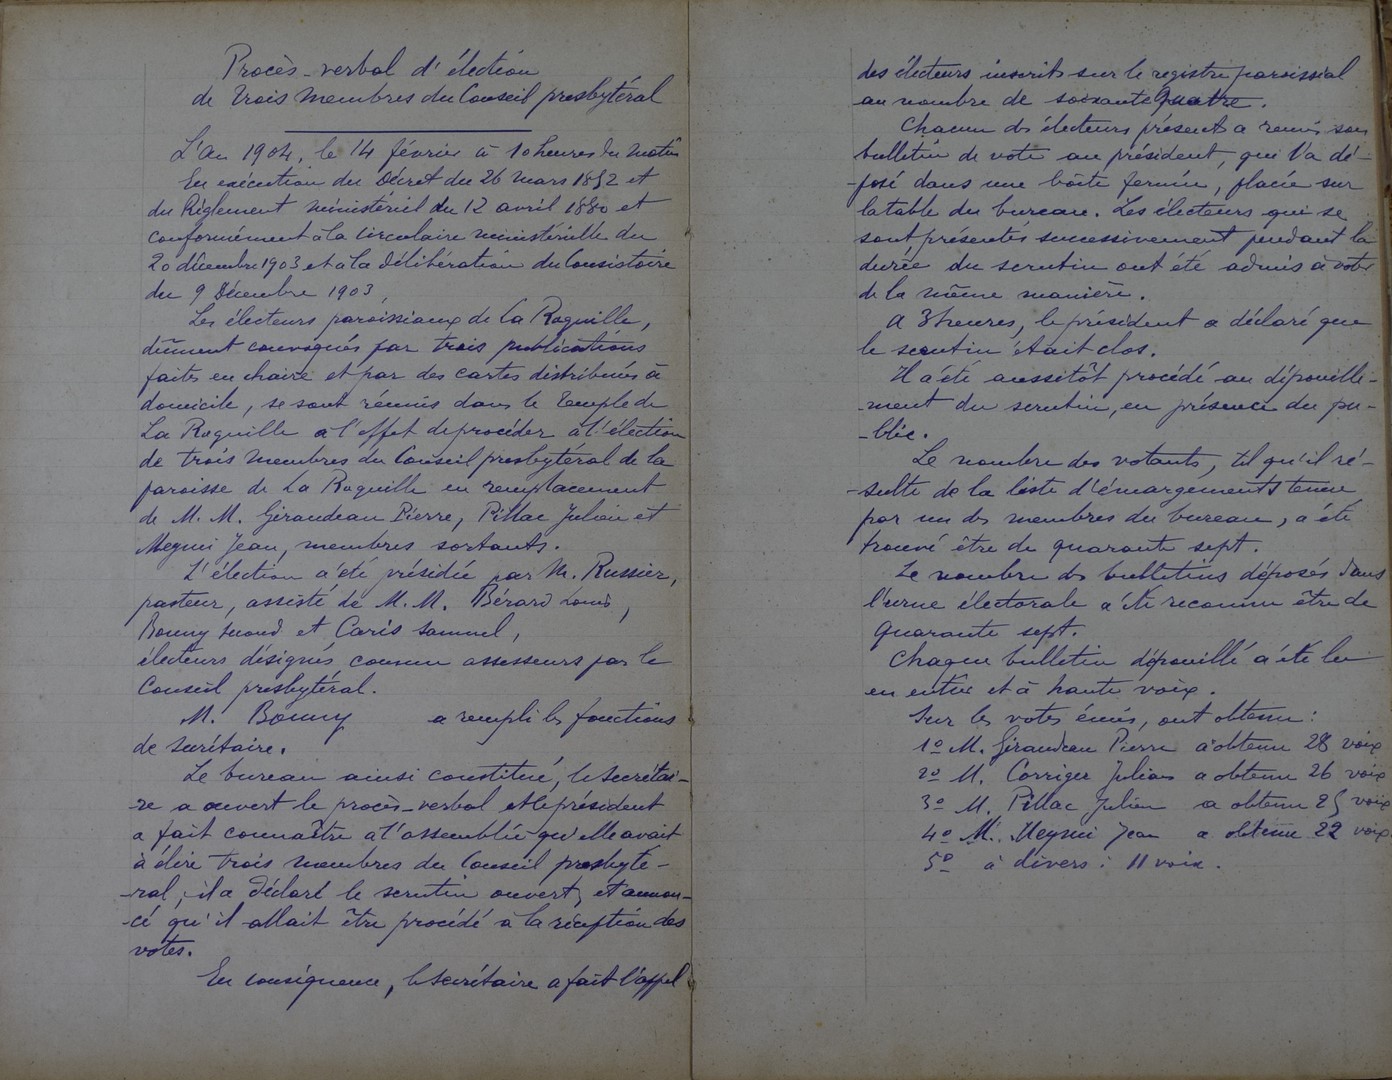 Procès-verbal d'élection
de trois membres du Conseil presbytéral
L'An 1904, le 14 février à 10 heures du matin
En exécution du Décret du 26 mars 1852 et
du Règlement ministériel du 12 avril 1880 et
conformément à la circulaire ministérielle du
20 décembre 1903 et à la délibération du Consistoire
du 9 Décembre 1903,
Les électeurs paroissiaux de La Roquille,
dûment convoqués par trois publications
faites en chaire et par des cartes distribuées à
domicile, se sont réunis dans le Temple de
La Roquille à l'effet de procéder à l'élection
de trois membres du Conseil presbytéral de la
paroisse de La Roquille en remplacement
de M. M. Giraudeau Pierre, Pillac Julien et
Meynui Jean, membres sortants.
L'élection a été présidée par M. Russier,
pasteur, assisté de M. M. Bérard Louis,
Bonny Second et Caris Samuel,
électeurs désignés comme assesseurs par le
Conseil presbytéral.
M. Bonny a rempli les fonctions
de secrétaire.
Le bureau ainsi constitué, le secrétai-
-re a ouvert le procès-verbal et le président
a fait connaître à l'assemblée qu'elle avait
à élire trois membres du Conseil presbyté-
-ral; il a déclaré le scrutin ouvert, et annon-
-cé qu'il allait être procédé à la réception des
votes.
En conséquence, le secrétaire a fait l'appel
des électeurs inscrits sur le registre paroissial
au nombre de soixante quatre.
Chacun des électeurs présents a remis son
bulletin de vote au président, qui l'a dé-
-posé dans une boîte fermée, placée sur
la table du bureau. Les électeurs qui se
sont présentés successivement pendant la
durée du scrutin ont été admis à voter
de la même manière.
A 3 heures, le président a déclaré que
le scrutin était clos.
Il a été aussitôt procédé au dépouille-
-ment du scrutin, en présence du pu-
-blic.
Le nombre des votants, tel qu'il ré-
-sulte de la liste d'émargements tenue
par un des membres du bureau, a été
trouvé être de quarante sept.
Le nombre des bulletins déposés dans
l'urne électorale a été reconnu être de
quarante sept.
Chaque bulletin dépouillé a été lu
en entier et à haute voix.
Sur les votes émis, ont obtenu:
1º M. Giraudeau Pierre a obtenu 28 voix
2º M. Corriger Julian a obtenu 26 voix
3º M. Pillac Julien a obtenu 25 voix
4º M. Meynui Jean a obtenu 22 voix.
5º à divers: 11 voix.